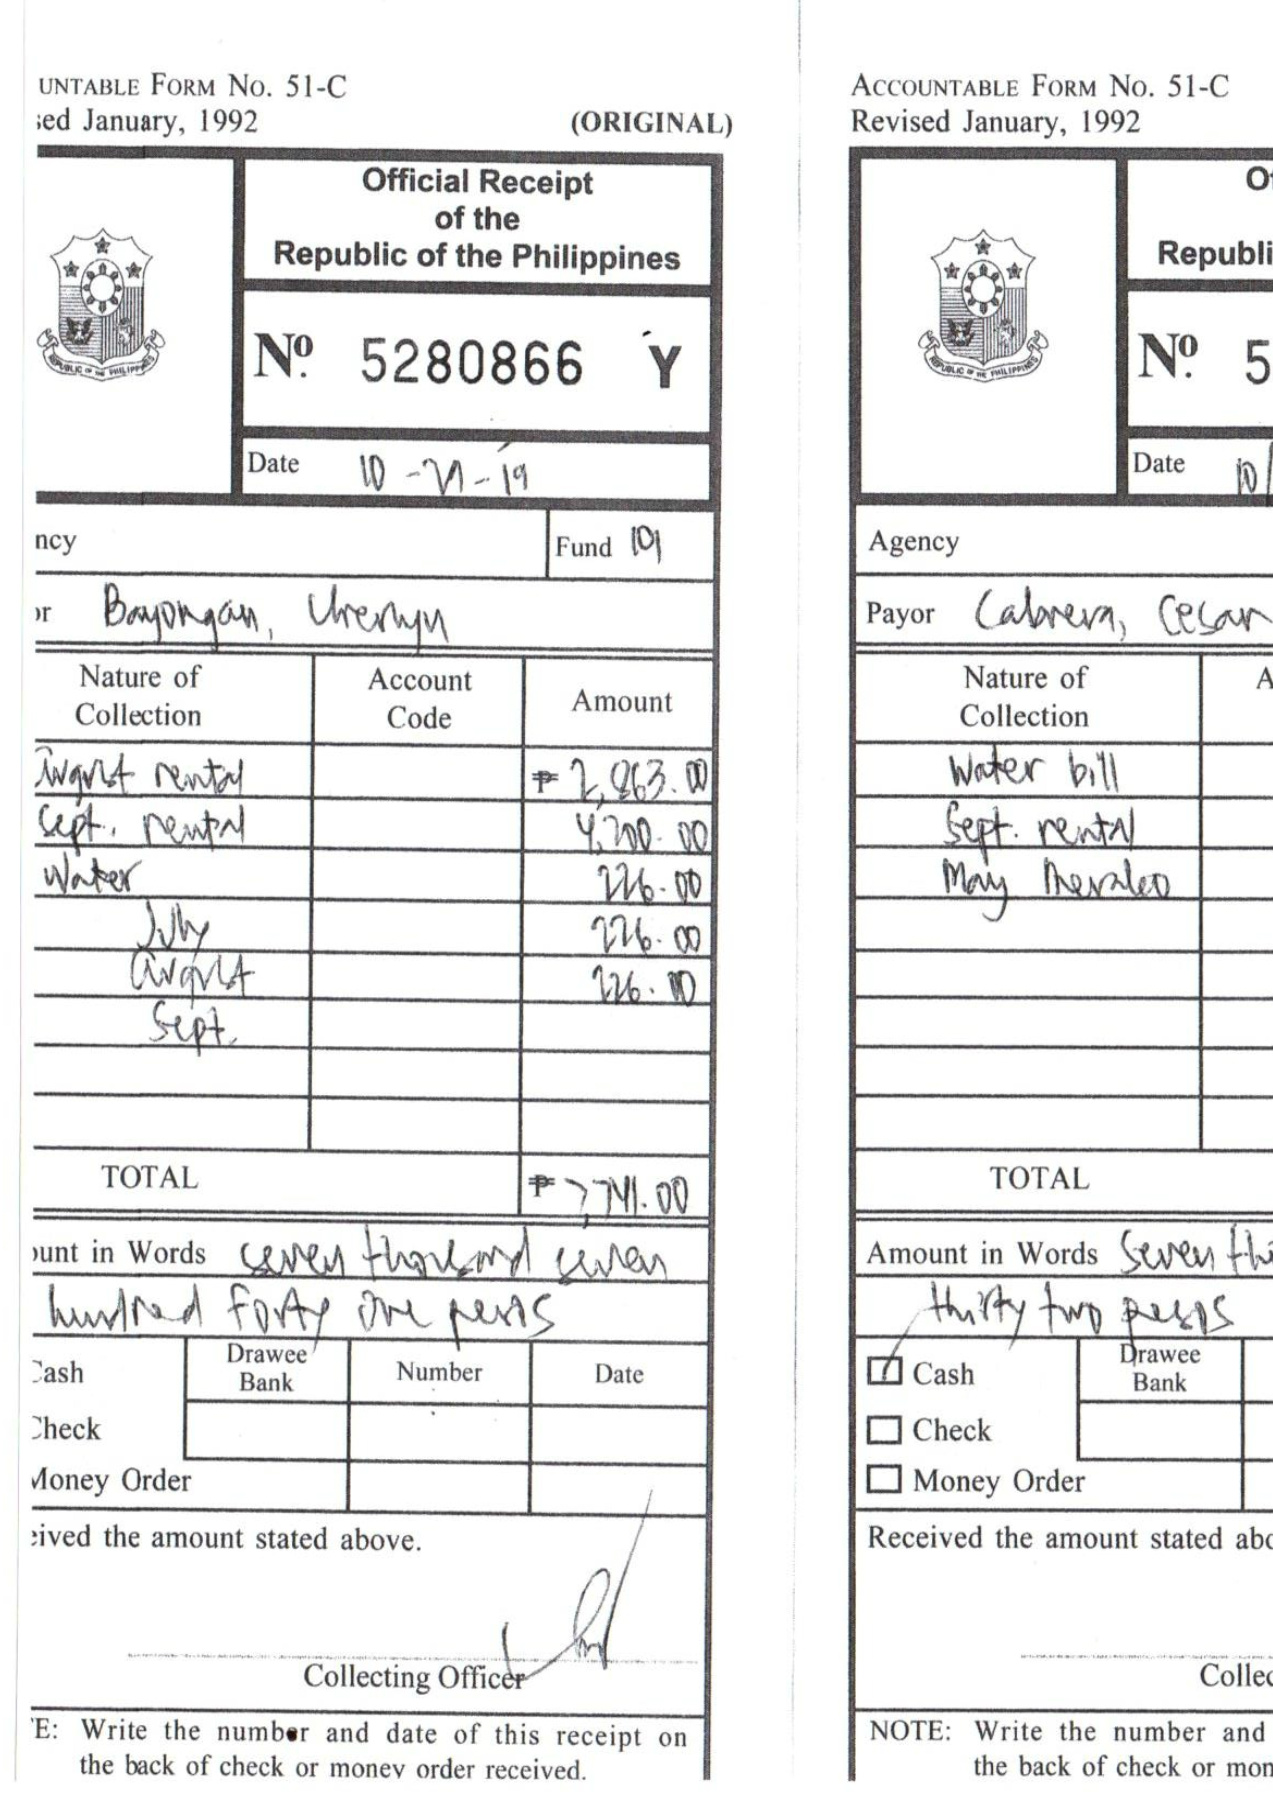 UNTABLE FORM NO. 51-C
sed January, 1992
(ORIGINAL)
Official Receipt
of the
Republic of the Philippines
REPUBLIC OF THE PHILIPP
Nº. 5280866 Y
Date 10-21-19
ncy
Fund 101
or Bayongan, Cherlyn
Nature of Collection
Account Code
Amount
August rental ₱ 2,863.00
Sept. rental 4,200.00
Water 226.00
July 226.00
August 226.00
Sept.
TOTAL ₱ 7,741.00
ount in Words seven thousand seven
hundred forty one pesos
Cash
Drawee Bank
Number
Date
Check
Money Order
eived the amount stated above.
Collecting Officer
TE: Write the number and date of this receipt on
the back of check or money order received.
ACCOUNTABLE FORM NO. 51-C
Revised January, 1992
Of
Republi
REPUBLIC OF THE PHILIPPINES
Nº. 5
Date 10/
Agency
Payor Cabrera, Cesar
Nature of Collection
A
Water bill
Sept. rental
May
TOTAL
Amount in Words Seven th
thirty two pesos
Cash
Drawee Bank
Check
Money Order
Received the amount stated abo
Collec
NOTE: Write the number and
the back of check or mon